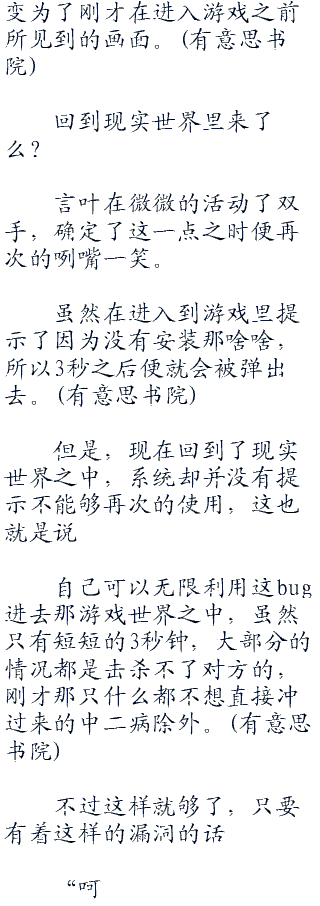 变为了刚才在进入游戏之前
所见到的画面。(有意思书
院)
回到现实世界里来了
么?
言叶在微微的活动了双
手，确定了这一点之时便再
次的咧嘴一笑。
虽然在进入到游戏里提
示了因为没有安装那啥啥，
所以3秒之后便就会被弹出
去。(有意思书院)
但是，现在回到了现实
世界之中，系统却并没有提
示不能够再次的使用，这也
就是说
自己可以无限利用这bug
进去那游戏世界之中，虽然
只有短短的3秒钟，大部分的
情况都是击杀不了对方的，
刚才那只什么都不想直接冲
过来的中二病除外。(有意思
书院)
不过这样就够了，只要
有着这样的漏洞的话
“呵